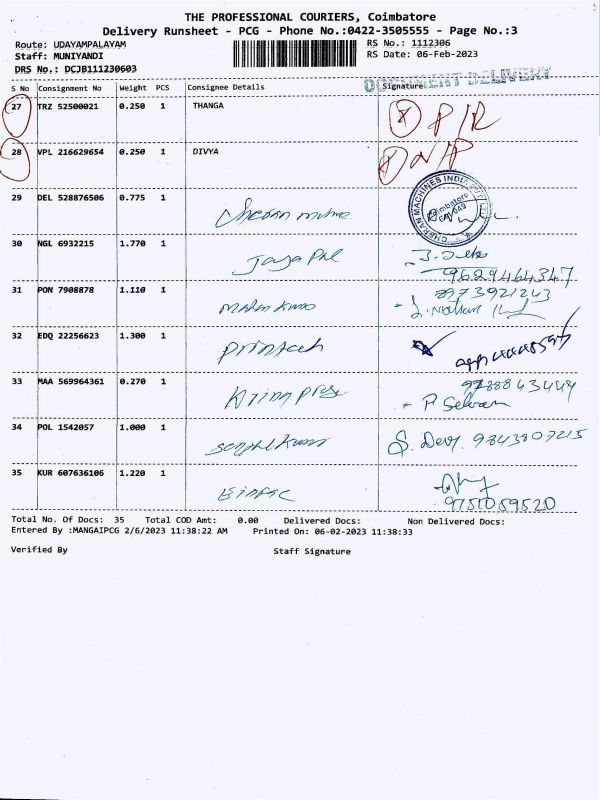 THE PROFESSIONAL COURIERS, Coimbatore
Delivery Runsheet - PCG - Phone No.:0422-3505555 - Page No.:3
Route: UDAYAMPALAYAM RS No.: 1112306
Staff: MUNIYANDI RS Date: 06-Feb-2023
DRS No.: DCJB111230603
DOCUMENT DELIVERY
S No Consignment No Weight PCS Consignee Details Signature
27 TRZ 52500021 0.250 1 THANGA
28 VPL 216629654 0.250 1 DIVYA
29 DEL 528876506 0.775 1
CHERAN MACHINES INDIA
Coimbatore
30 NGL 6932215 1.770 1 Jaya
9629464347
31 PON 7908878 1.110 1
8973921243
32 EDQ 22256623 1.300 1 printech
33 MAA 569964361 0.270 1
P Selvam
34 POL 1542057 1.000 1 S. Devi 9843807215
35 KUR 607636106 1.220 1
9751059520
Total No. Of Docs: 35 Total COD Amt: 0.00 Delivered Docs: Non Delivered Docs:
Entered By :MANGAIPCG 2/6/2023 11:38:22 AM Printed On: 06-02-2023 11:38:33
Verified By Staff Signature